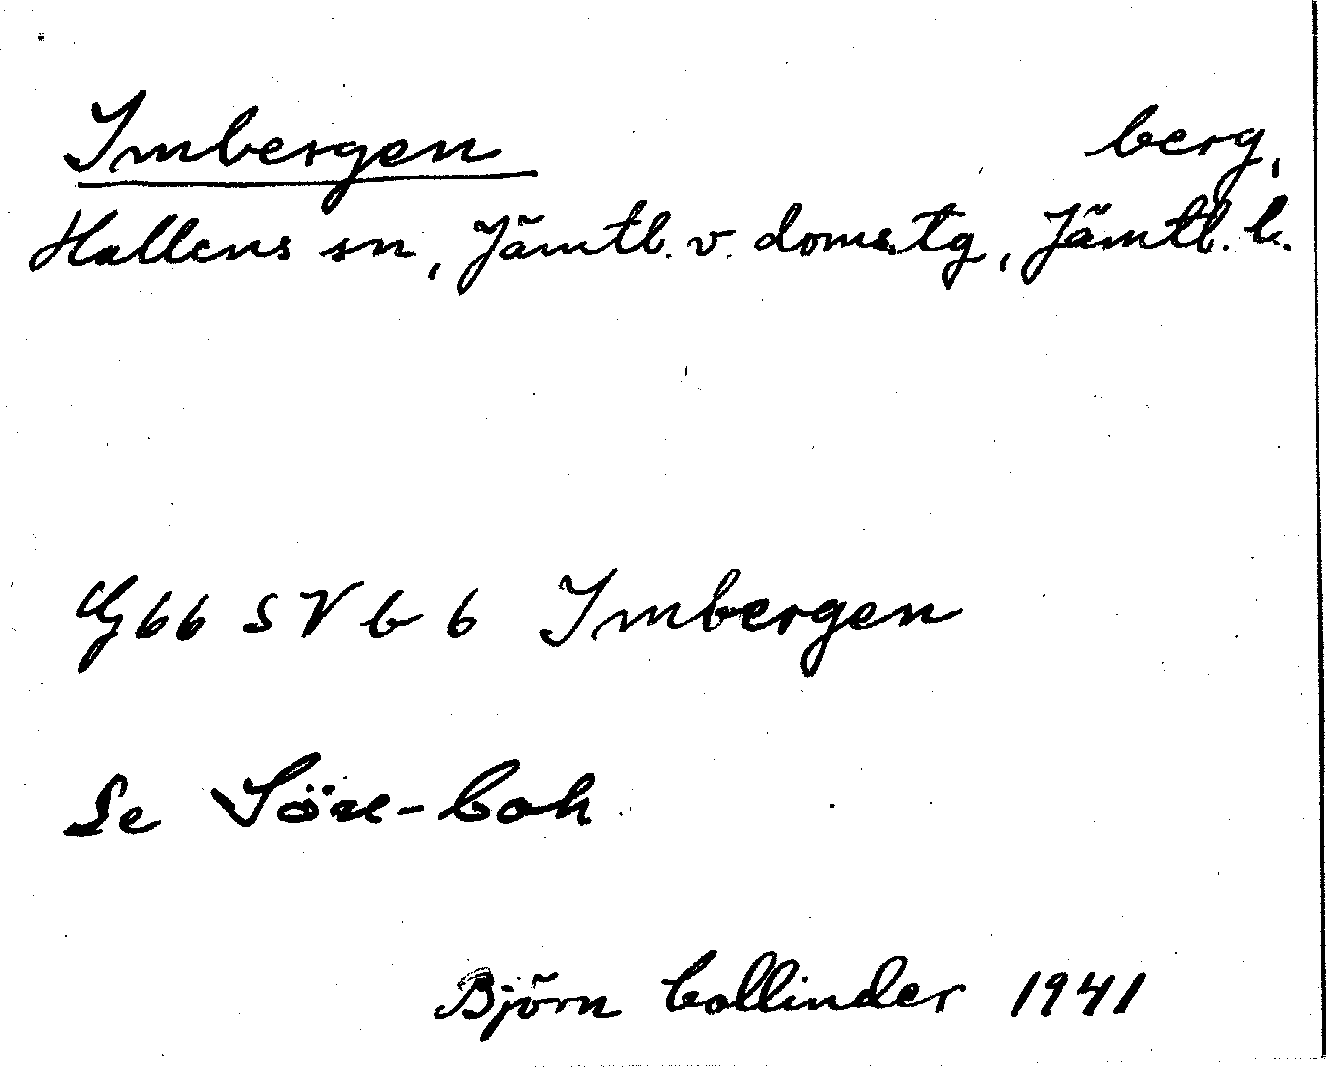 Imbergen berg,
Hallens sn, Jämtl. v. doms.tg, Jämtl. l.
G66 SV b 6 Imbergen
Se
Björn Collinder 1941